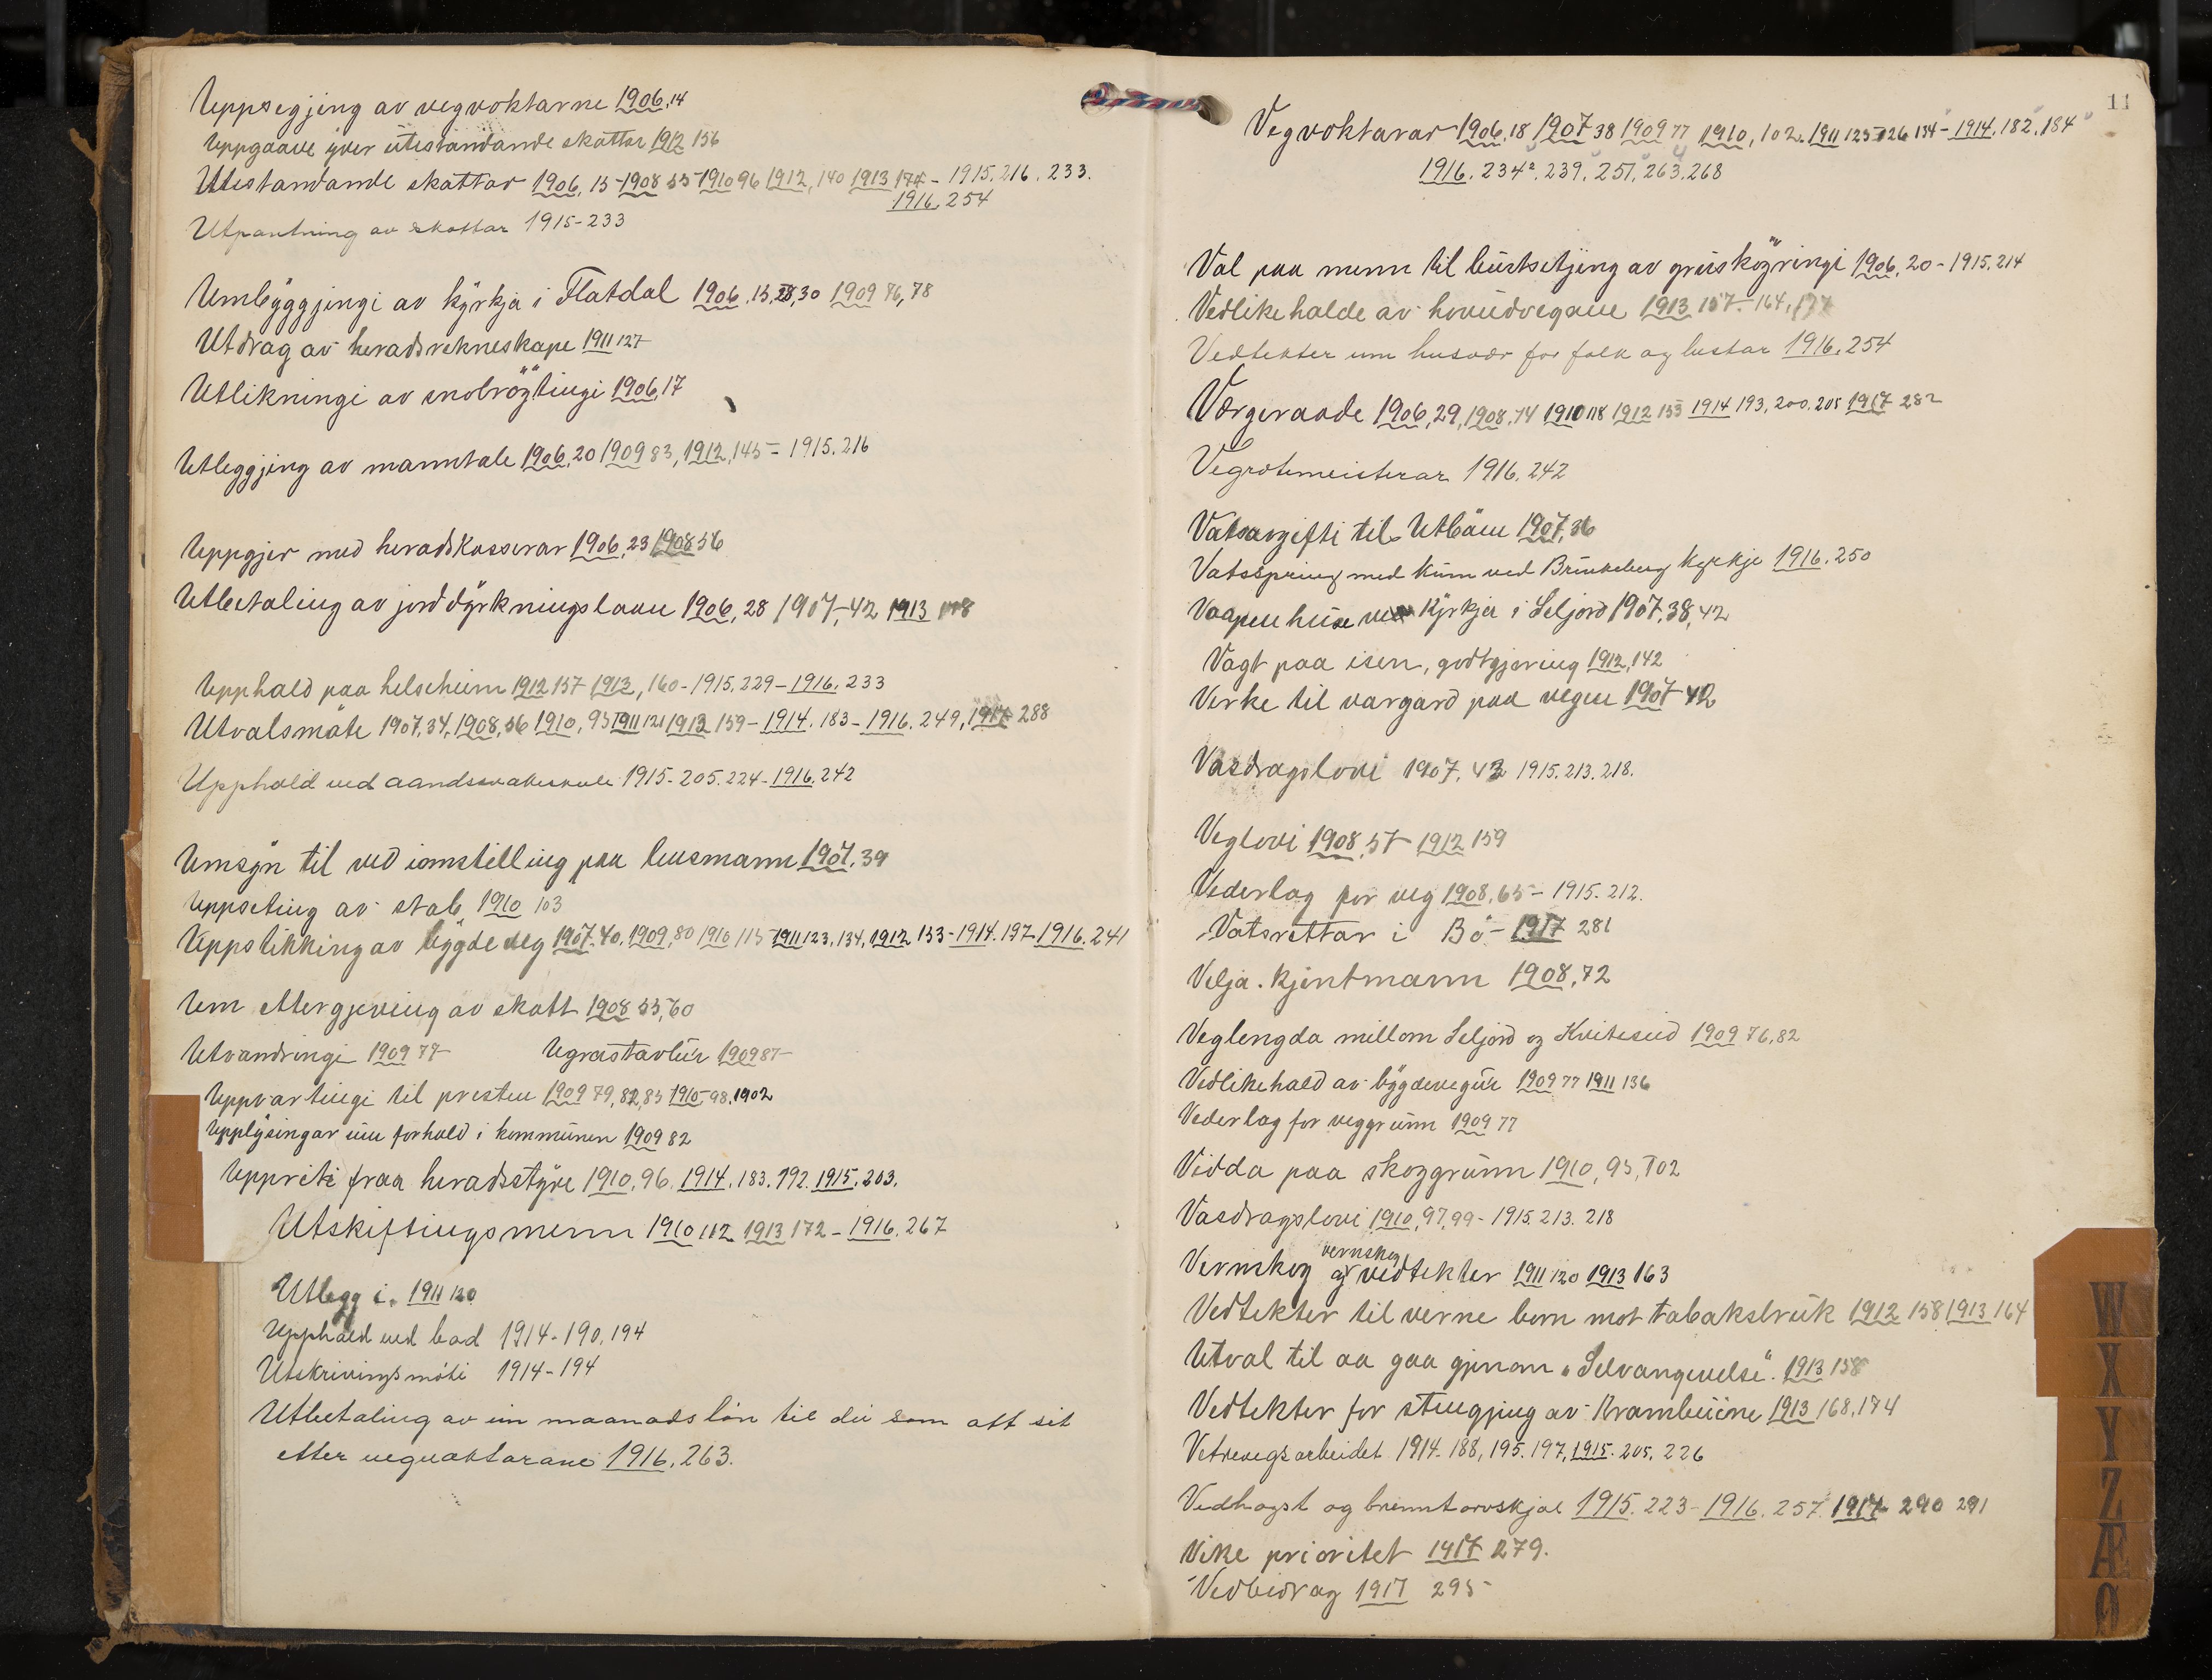 Uppsegjing av vegvoktarne 1906, 14
Uppgaave yver utestandande skattar 1912 156
Utestandande skattar 1906, 15 - 1908 55 - 1910 96 1912, 140 1913 174 - 1915. 216. 233.
1916. 254
Utpantning av skattar 1915-233
Umbyggjingi av kyrkja i Flatdal 1906, 15, 28, 30 1909 76, 78
Utdrag av heradsrekneskape 1911 127
Utlikningi av snobrøytingi 1906, 17
Utleggjing av manntale 1906, 20 1909 83, 1912, 145 - 1915. 216
Uppgjer med heradskasserar 1906, 23 1908 56
Utbetaling av jorddyrkningslaan 1906, 28 1907, 42 1913 178
Upphald paa helseheim 1912 157 1913, 160 - 1915. 229 - 1916. 233
Utvalsmøte 1907, 34, 1908, 56 1910, 93 1911 121 1913 159 - 1914. 183 - 1916. 249, 1917 288
Upphald ved aandssvakeskule 1915 - 205. 224 - 1916. 242
Umsyn til ved iamstelling paa lensmann 1907, 39
Uppseting av stab 1910 103
Uppstikking av bygdeveg 1907, 40, 1909, 80 1910 115 1911 123, 134, 1912 153 - 1914. 197 - 1916. 241
Um ettergjeving av skatt 1908 55, 60
Utvandringi 1909 77
Ugrastavlur 1909 87
Uppvartingi til presten 1909 79, 82, 83 1910 98, 1902
Upplysingar um forhold i kommunen 1909 82
Upprit fraa heradsstyre 1910, 96. 1914. 183. 192. 1915. 203.
Utskiftingsmenn 1910 112 1913 172 - 1916. 267
Utlegg i. 1911 120
Upphald ved bad 1914 - 190, 194
Utskrivingsmøti 1914 - 194
Utbetaling av ein maanads løn til dei som att sit
etter vegvaktarane 1916, 263.
11
Vegvoktarar 1906, 18 1907 38 1909 77 1910, 102. 1911 125 126 134 - 1914. 182, 184
1916. 234. 239. 251. 263. 268
Val paa menn til burtsetjing av gruskøyringi 1906, 20 - 1915. 214
Vedlikehalde av hovudvegane 1913 157 - 164, 177
Vedtekter um husvær for folk og hestar 1916. 254
Vergeraade 1906, 29, 1908, 74 1910 118 1912 153 1914 193, 200. 205 1917 282
Vegrotemeisterar 1916. 242
Vatsavgifti til Utbøen 1907, 36
Vatsspring med kum ved Brunkeberg kyrkje 1916. 250
Vaapenhuse ved Kyrkja i Seljord 1907, 38, 42
Vagt paa isen, godtgjering 1912, 142
Verke til vargard paa vegen 1907 42
Vasdragslovi 1907. 43 1915. 213. 218.
Veglovi 1908, 57 1912 159
Vederlag for veg 1908, 65 - 1915. 212.
Vatsrettar i Bø - 1917 281
Velja. kjentmann 1908, 72
Veglengda millom Seljord og Kviteseid 1909 76, 82
Vedlikehald av bygdevegur 1909 77 1911 136
Vederlag for veggrunn 1909 77
Vidda paa skoggrunn 1910, 93, 102
Vasdragslovi 1910, 97, 99 - 1915. 213. 218
Vernskog og vernskog vedtekter 1911 120 1913 163
Vedtekter til verne born mot tabaksbruk 1912 158 1913 164
Utval til aa gaa gjenom „Selvangivelse". 1913 158
Vedtekter for stengjing av Krambuene 1913 168, 174
Vetrevegsarbeidet 1914. 188, 195. 197, 1915. 205. 226
Vedhogst og brenntorvskjæl 1915. 223 - 1916. 257. 1917 290 291
Vike prioritet 1917 279.
Vedbidrag 1917 295
W
X
Y
Z
Æ
Ø